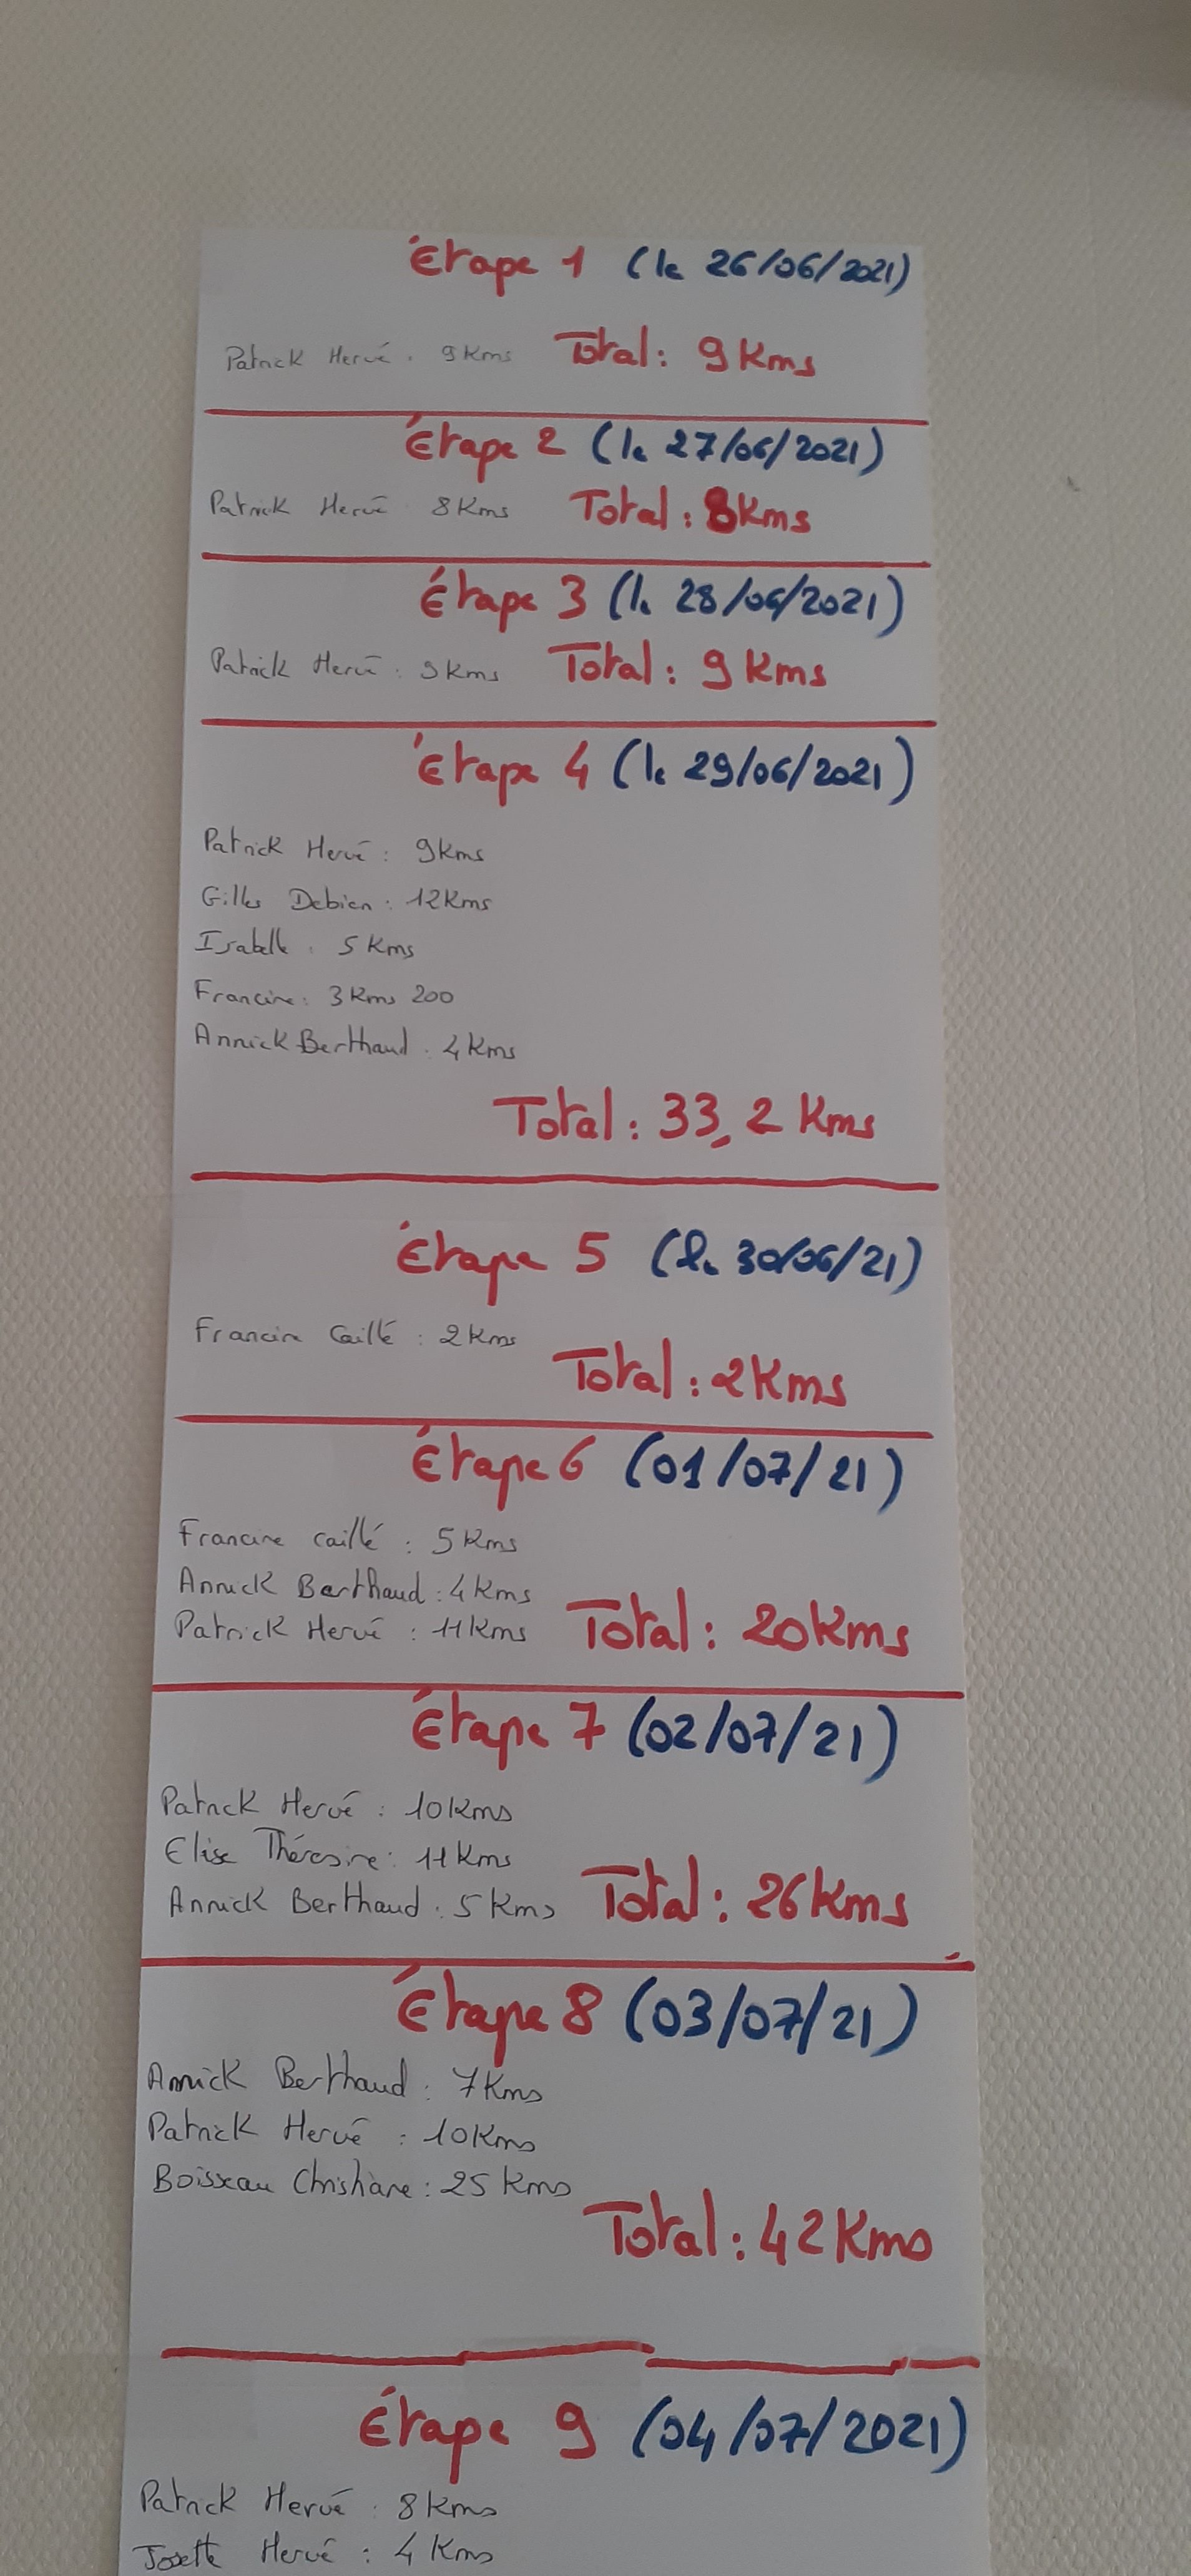 Étape 1 (le 26/06/2021)
Patrick Hervé : 9Kms Total : 9 Kms
Étape 2 (le 27/06/2021)
Patrick Hervé 8Kms Total : 8Kms
Étape 3 (le 28/06/2021)
Patrick Hervé : 9Kms Total : 9 Kms
Étape 4 (le 29/06/2021)
Patrick Hervé : 9Kms
Gilles Debien : 12Kms
Isabelle : 5 Kms
Francine : 3 Kms 200
Annick Berthaud : 4Kms
Total : 33,2 Kms
Étape 5 (le 30/06/21)
Francine Caillé : 2Kms
Total : 2Kms
Étape 6 (01/07/21)
Francine caillé : 5Kms
Annick Berthaud : 4Kms
Patrick Hervé : 11Kms Total : 20Kms
Étape 7 (02/07/21)
Patrick Hervé : 10Kms
Elise Thérésine : 11Kms
Annick Berthaud : 5Kms Total : 26Kms
Étape 8 (03/07/21)
Annick Berthaud : 7Kms
Patrick Hervé : 10Kms
Boisseau Christiane : 25 Kms
Total : 42Kms
Étape 9 (04/07/2021)
Patrick Hervé : 8Kms
Josette Hervé : 4 Kms